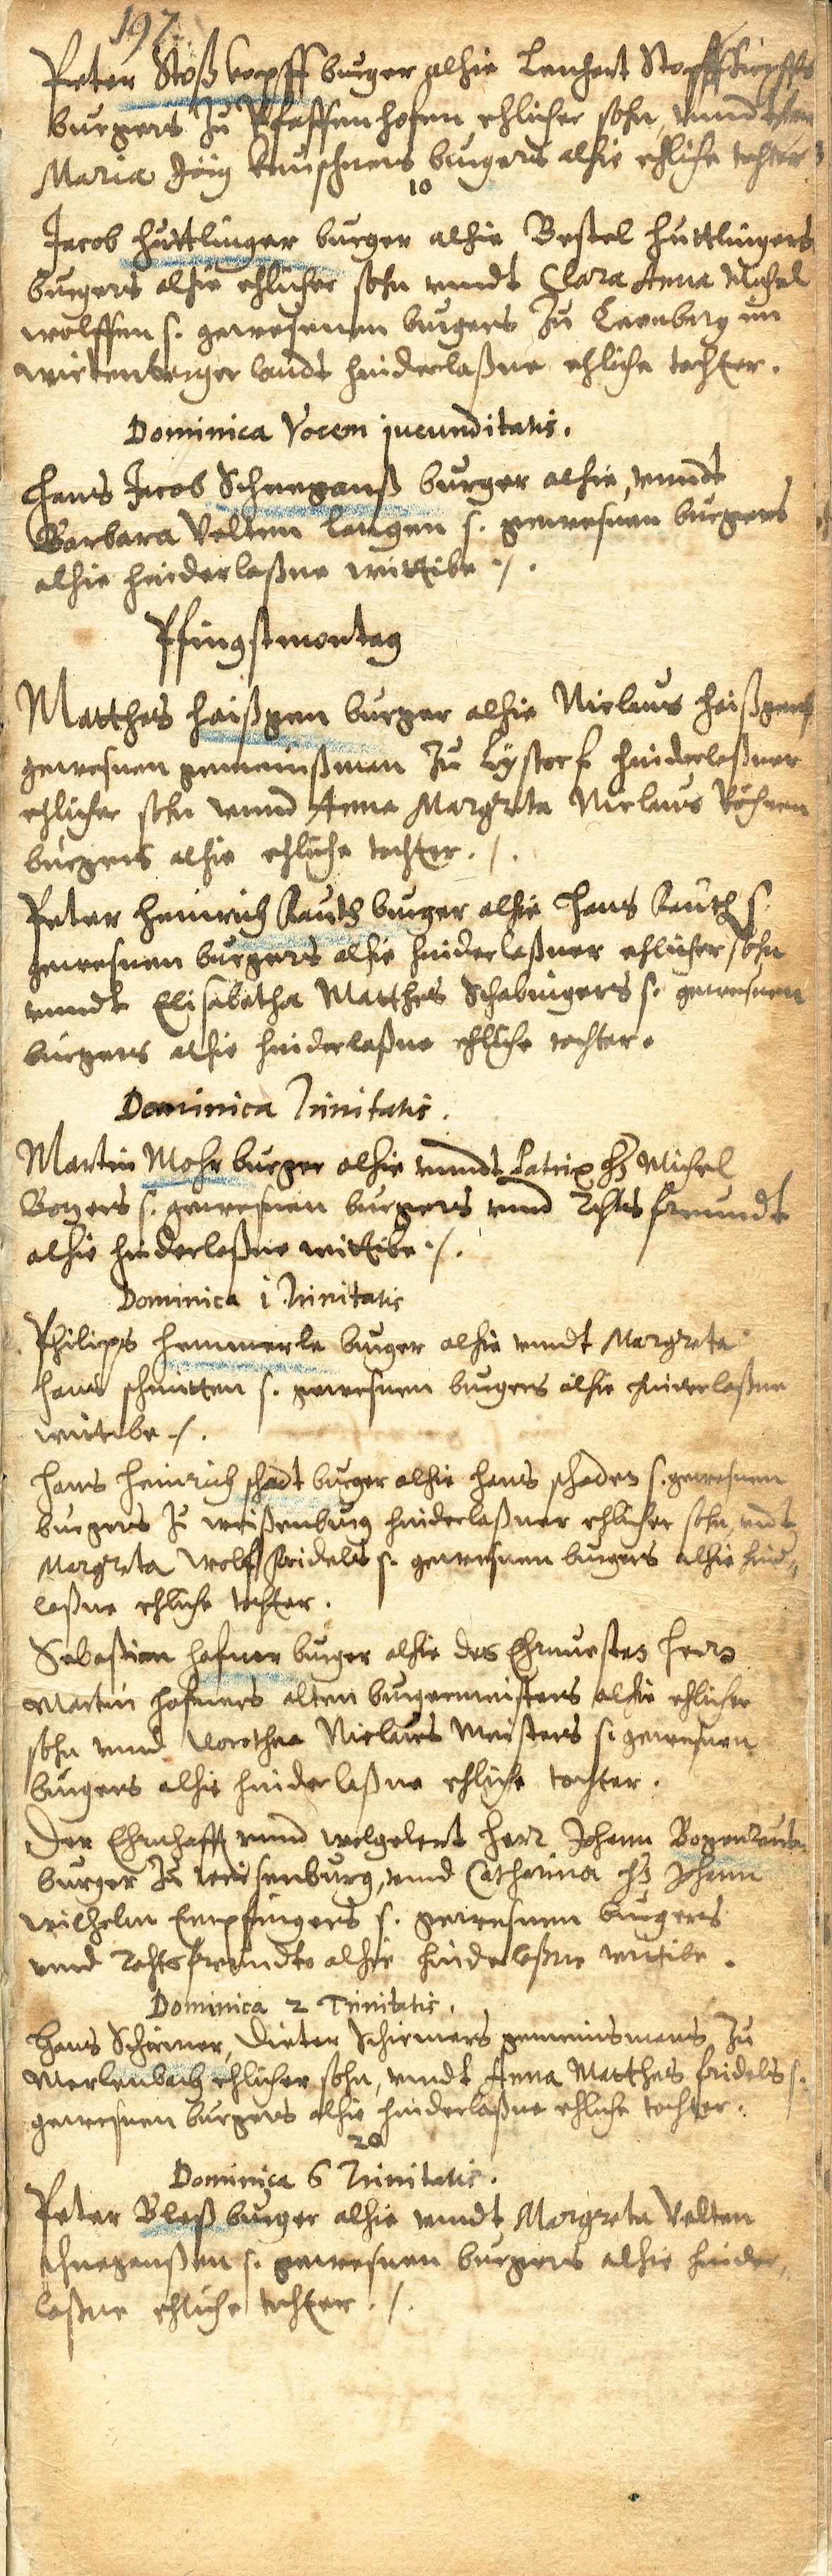 197
Peter Stoßkopff burger alhie Lenhart Stoßkopffs
burgers zu Pfaffenhofen ehlicher sohn, vnnd
Maria Jörg Kürschners burgers alhie ehliche tochter
10
Jacob Huttlinger burger alhie Bestel Huttlingers
burgers alhie ehlicher sohn vnndt Clara Anna Michel
wolffen s. gewesenen burgers zu Leonberg im
wirtenberger landt hinderlaßne ehliche tochter.
Dominica Vocem jucunditatis.
Hans Jacob Schnepanß burger alhie, vnndt
Barbara Velten Langen s. gewesnen burgers
alhie hinderlaßne wittibe ./.
Pfingstmontag
Matthes heißgen burger alhie Niclaus heißgens
gewesnen gemeinßman zu Lystorf hinderlaßner
ehlicher sohn vnnd Anna Margreta Niclaus
burgers alhie ehliche tochter ./.
Peter Heinrich Kauth burger alhie Hans Kauth s.
gewesnen burgers alhie hinderlaßner ehlicher sohn
vnndt Elisabetha Matthes Schabingers s. gewesnen
burgers alhie hinderlaßne ehliche tochter.
Dominica Trinitatis.
Martin Mohr burger alhie vnndt H Michel
s. gewesnen burgers vnnd Rchtsfreundt
alhie hinderlaßne wittibe ./.
Dominica 1 Trinitatis
Philips Hemmerle burger alhie vnndt Margreta
Hans schmitten s. gewesnen burgers alhie hinderlaßne
wittibe ./.
Hans Heinrich schadt burger alhie Hans schaden s. gewesnen
burgers zu weißenburg hinderlaßner ehlicher sohn, vndt
Margreta Wolff fridels s. gewesnen burgers alhie hind,
laßne ehliche tochter.
Sebastian hafner burger alhie des Ehrnuesten Herr
Martin hafners alten burgermeisters alhie ehlicher
sohn vnnd Dorothea Niclaus Meisters s. gewesnen
burgers alhie hinderlaßne ehliche tochter.
Der Ehrnhafft vnnd wolgelert Herr Johann
burger zu weissenburg, vnnd Catharina H Johann
Wilhelm Empfingers s. gewesnen burgers
vnnd Rchtsfreundts alhie hinderlaßne wittibe.
Dominica 2 Trinitatis.
Hans Schirmer, Dieter Schirmers gemeinsmans zu
Merlenbach ehlicher sohn, vnndt Anna Matthes fridels s.
gewesnen burgers alhie hinderlaßne ehliche tochter.
20
Dominica 6 Trinitatis.
Peter Bleß burger alhie vnndt Margreta Velten
schnepanßen s. gewesnen burgers alhie hinder,
laßne ehliche tochter ./.